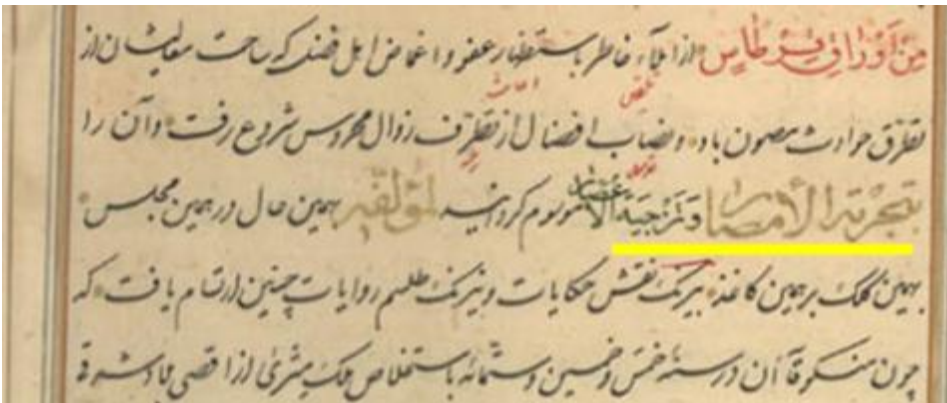 مِنْ أَوْرَاقِ قِرْطَاسٍ از املاء خاطر باستظهار عفو و اغماض اهل فضل که ساحت معالیشان از
نقص امانت
تطرق حوادث مصون باد و نصاب افضال از تطرف زوال محروس شروع رفت و آن را
بتجزیة الأمصار وتزجیة الأعصار موسوم کردانید لمؤلفه بهمین حال در همین مجلس
بهمین کلک بر همین کاغذ بیرنک نقش حکایات و نیرنک طلسم روایات چنین ارتسام یافت که
چون منکوقاآن در سنهٔ خمس و خمسین و ستمائه باستخلاص ملک مشرق از اقصی